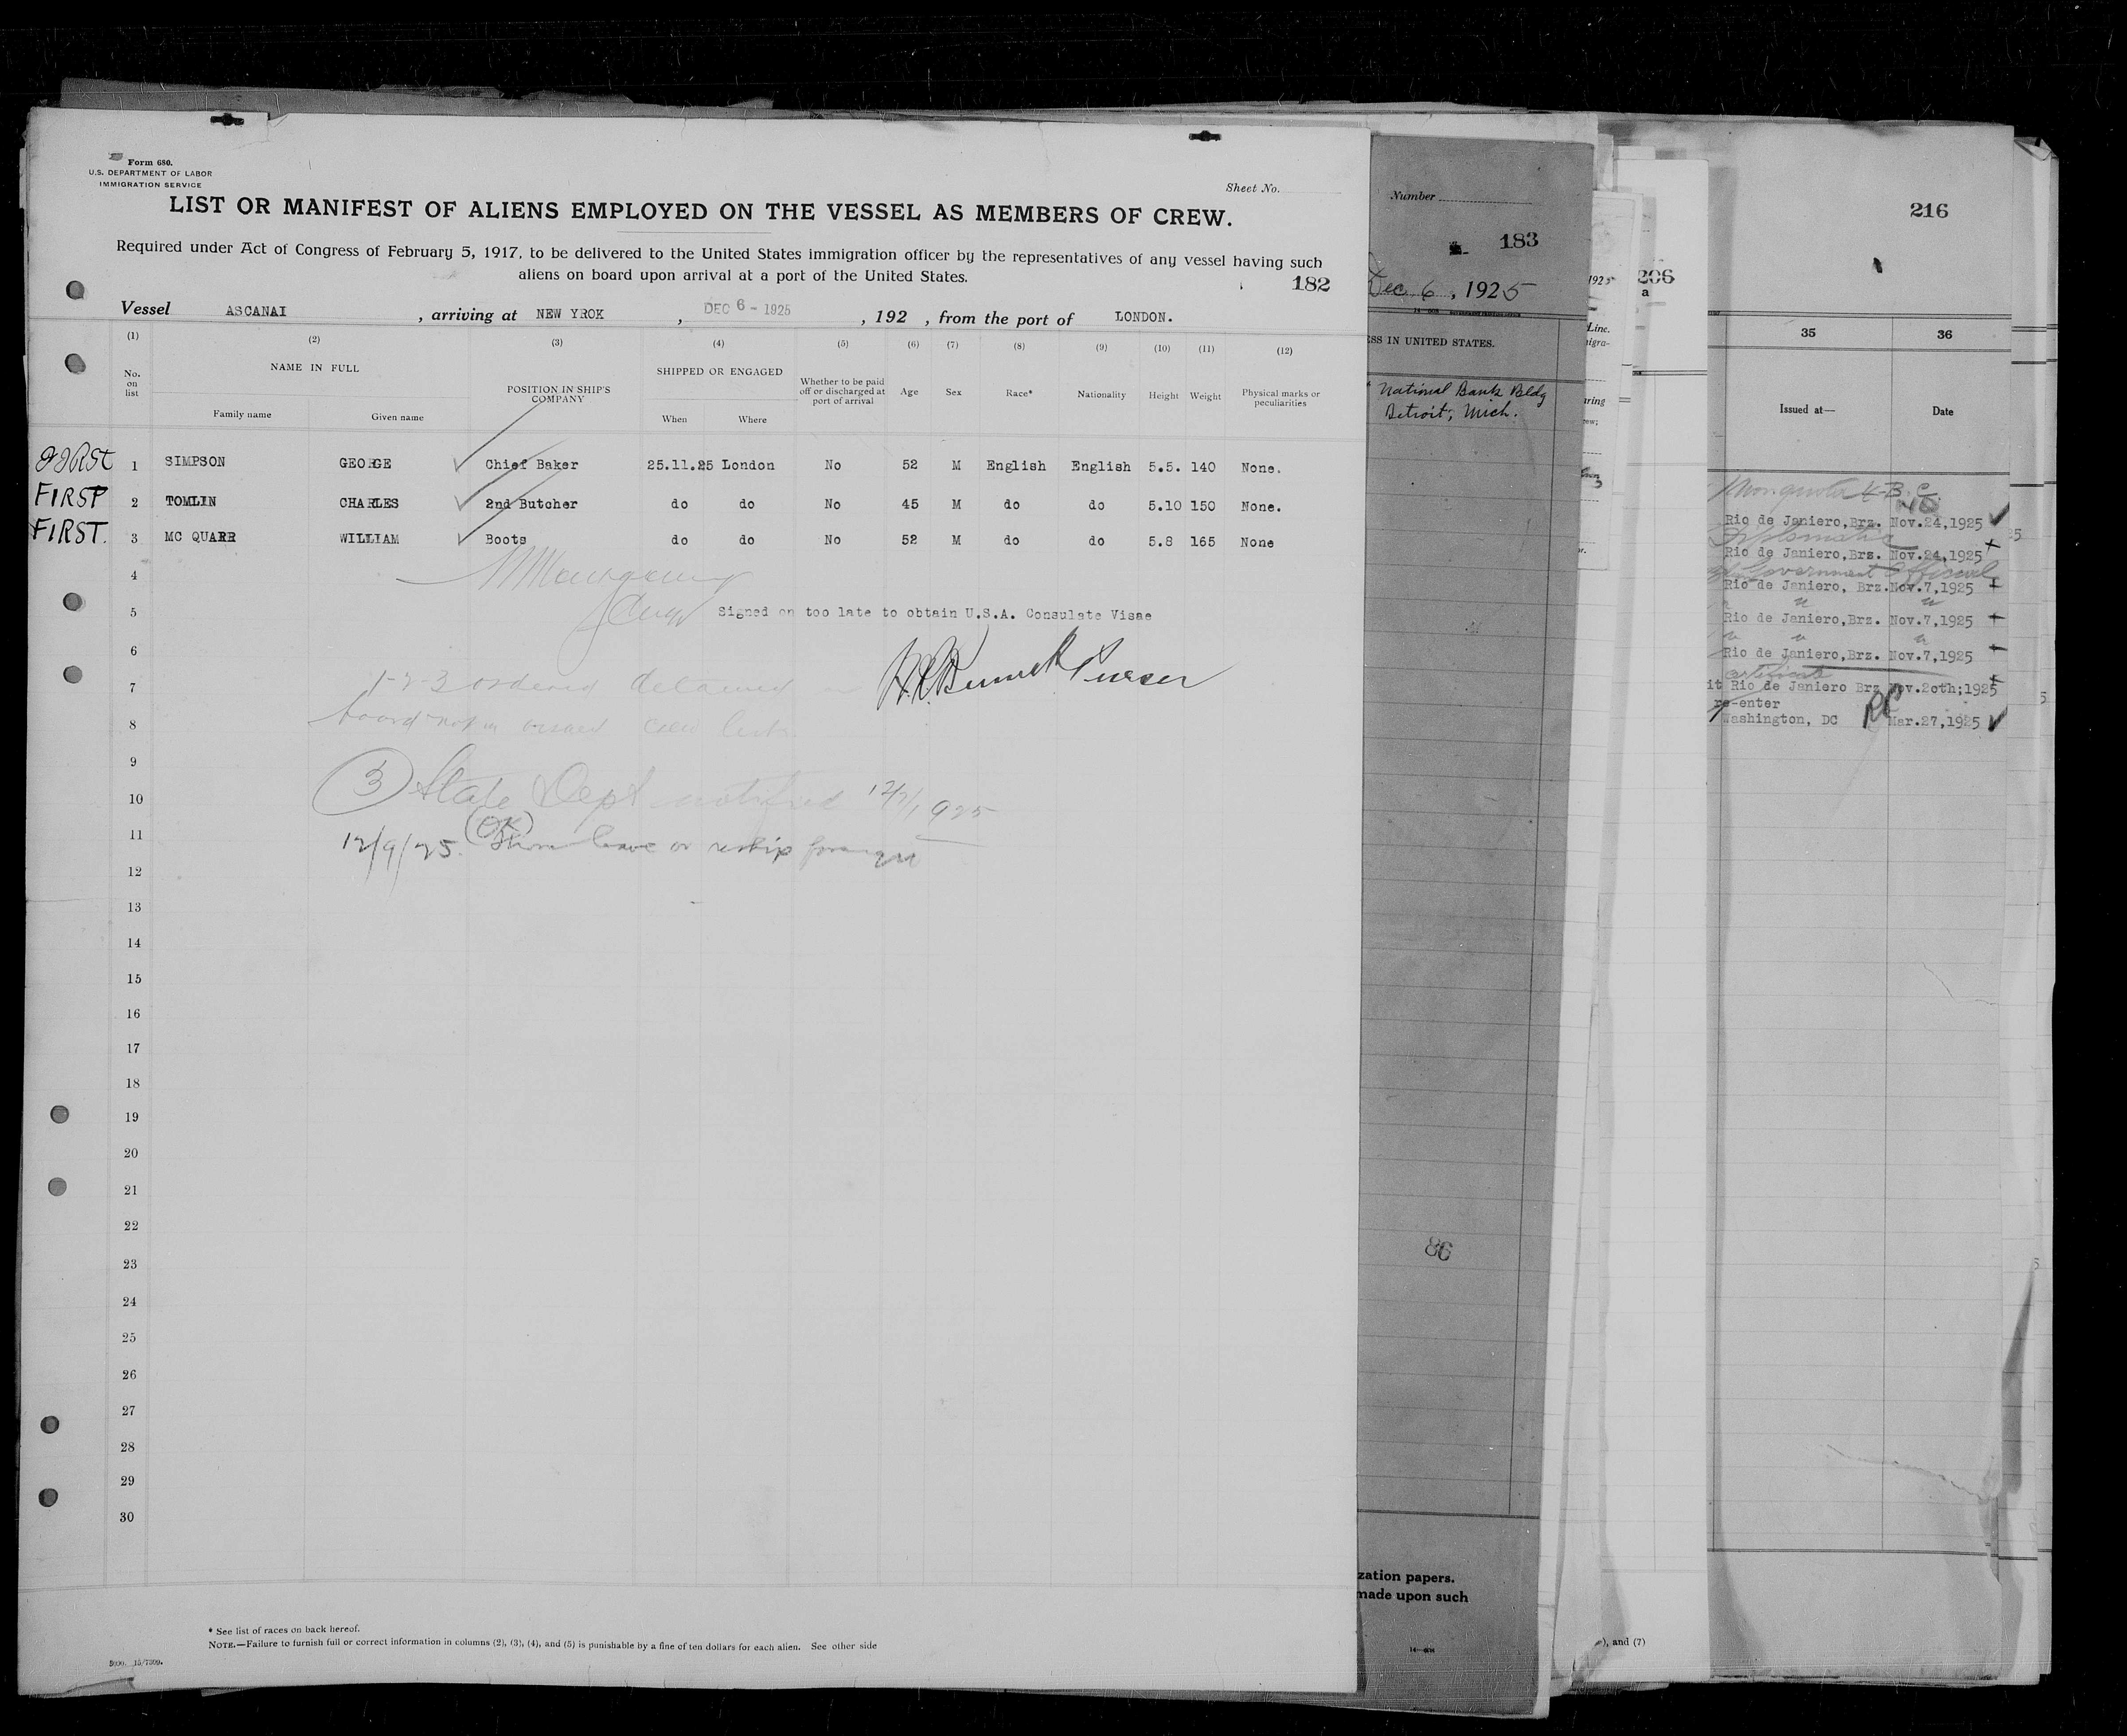 Form 680.
U.S. DEPARTMENT OF LABOR
IMMIGRATION SERVICE
Sheet No.
LIST OR MANIFEST OF ALIENS EMPLOYED ON THE VESSEL AS MEMBERS OF CREW.
Required under Act of Congress of February 5, 1917, to be delivered to the United States immigration officer by the representatives of any vessel having such
aliens on board upon arrival at a port of the United States.
182
Vessel ASCANAI , arriving at NEW YROK , DEC 6 - 1925 , 192 , from the port of LONDON.
(1) (2) (3) (4) (5) (6) (7) (8) (9) (10) (11) (12)
No. on list NAME IN FULL POSITION IN SHIP'S COMPANY SHIPPED OR ENGAGED Whether to be paid off or discharged at port of arrival Age Sex Race* Nationality Height Weight Physical marks or peculiarities
Family name Given name When Where
FIRST 1 SIMPSON GEORGE Chief Baker 25.11.25 London No 52 M English English 5.5. 140 None.
FIRST 2 TOMLIN CHARLES 2nd Butcher do do No 45 M do do 5.10 150 None.
FIRST. 3 MC QUARR WILLIAM Boots do do No 52 M do do 5.8 165 None
4
5 Signed on too late to obtain U.S.A. Consulate Visae
6
7 1-2-3 ordered detained on Purser
8 board not in visaed crew list
9
10 (3) State Dept notified 12/7/1925
11 12/9/25. (OK) Shore leave or reship foreign
12
13
14
15
16
17
18
19
20
21
22
23
24
25
26
27
28
29
30
* See list of races on back hereof.
NOTE.—Failure to furnish full or correct information in columns (2), (3), (4), and (5) is punishable by a fine of ten dollars for each alien. See other side
Number
183
Dec 6, 1925
SS IN UNITED STATES.
National Bank Bldg
Detroit, Mich.
86
zation papers.
made upon such
1925
Line.
igra-
ring
), and (7)
206
a
216
35 36
Issued at— Date
Non quota 4-B.C.
Rio de Janiero,Brz. Nov.24,1925
Diplomatic
Rio de Janiero,Brz. Nov.24,1925
Government Official
Rio de Janiero, Brz. Nov.7,1925
" "
Rio de Janiero,Brz. Nov.7,1925
" " "
Rio de Janiero,Brz. Nov.7,1925
certificate
it Rio de Janiero Brz Nov.20th;1925
re-enter
Washington, DC Mar.27,1925